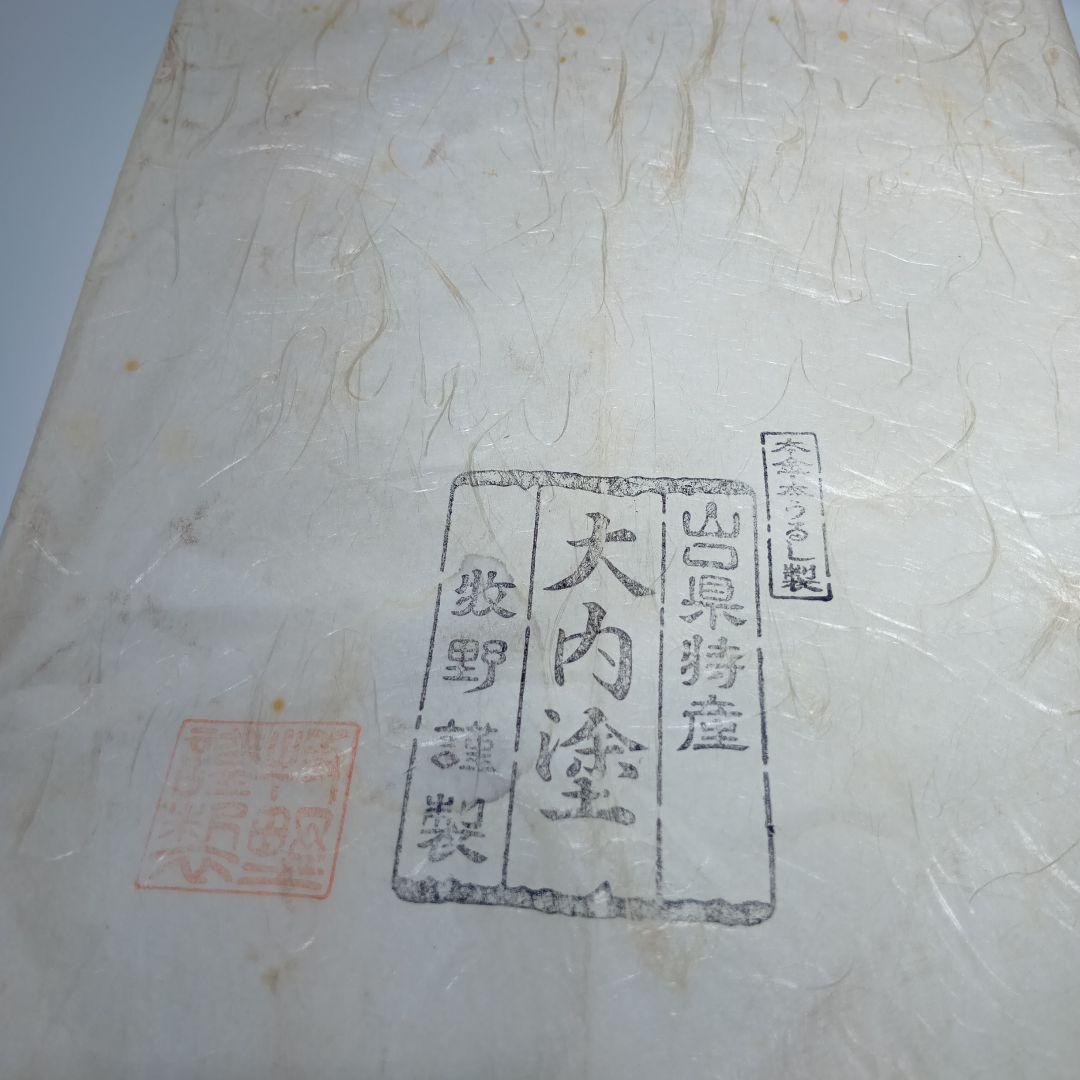 本金・本うるし製
山口県特産
大内塗
牧野謹製
牧野
謹製